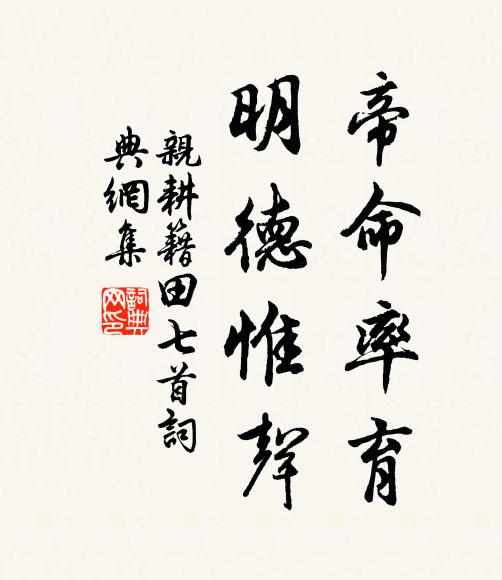 帝命率育
明德惟聲
親耕籍田七首詞
典網集
詞典
网印